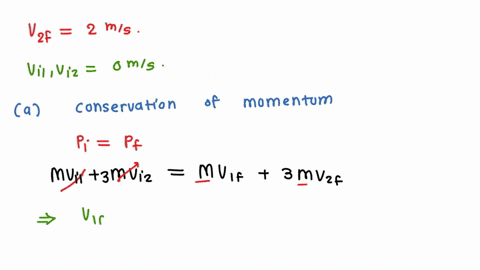 V2f = 2 m/s.
Vi1, Vi2 = 0 m/s.
(a) conservation of momentum
Pi = Pf
mVi1 + 3mVi2 = mV1f + 3mV2f
⇒ V1f